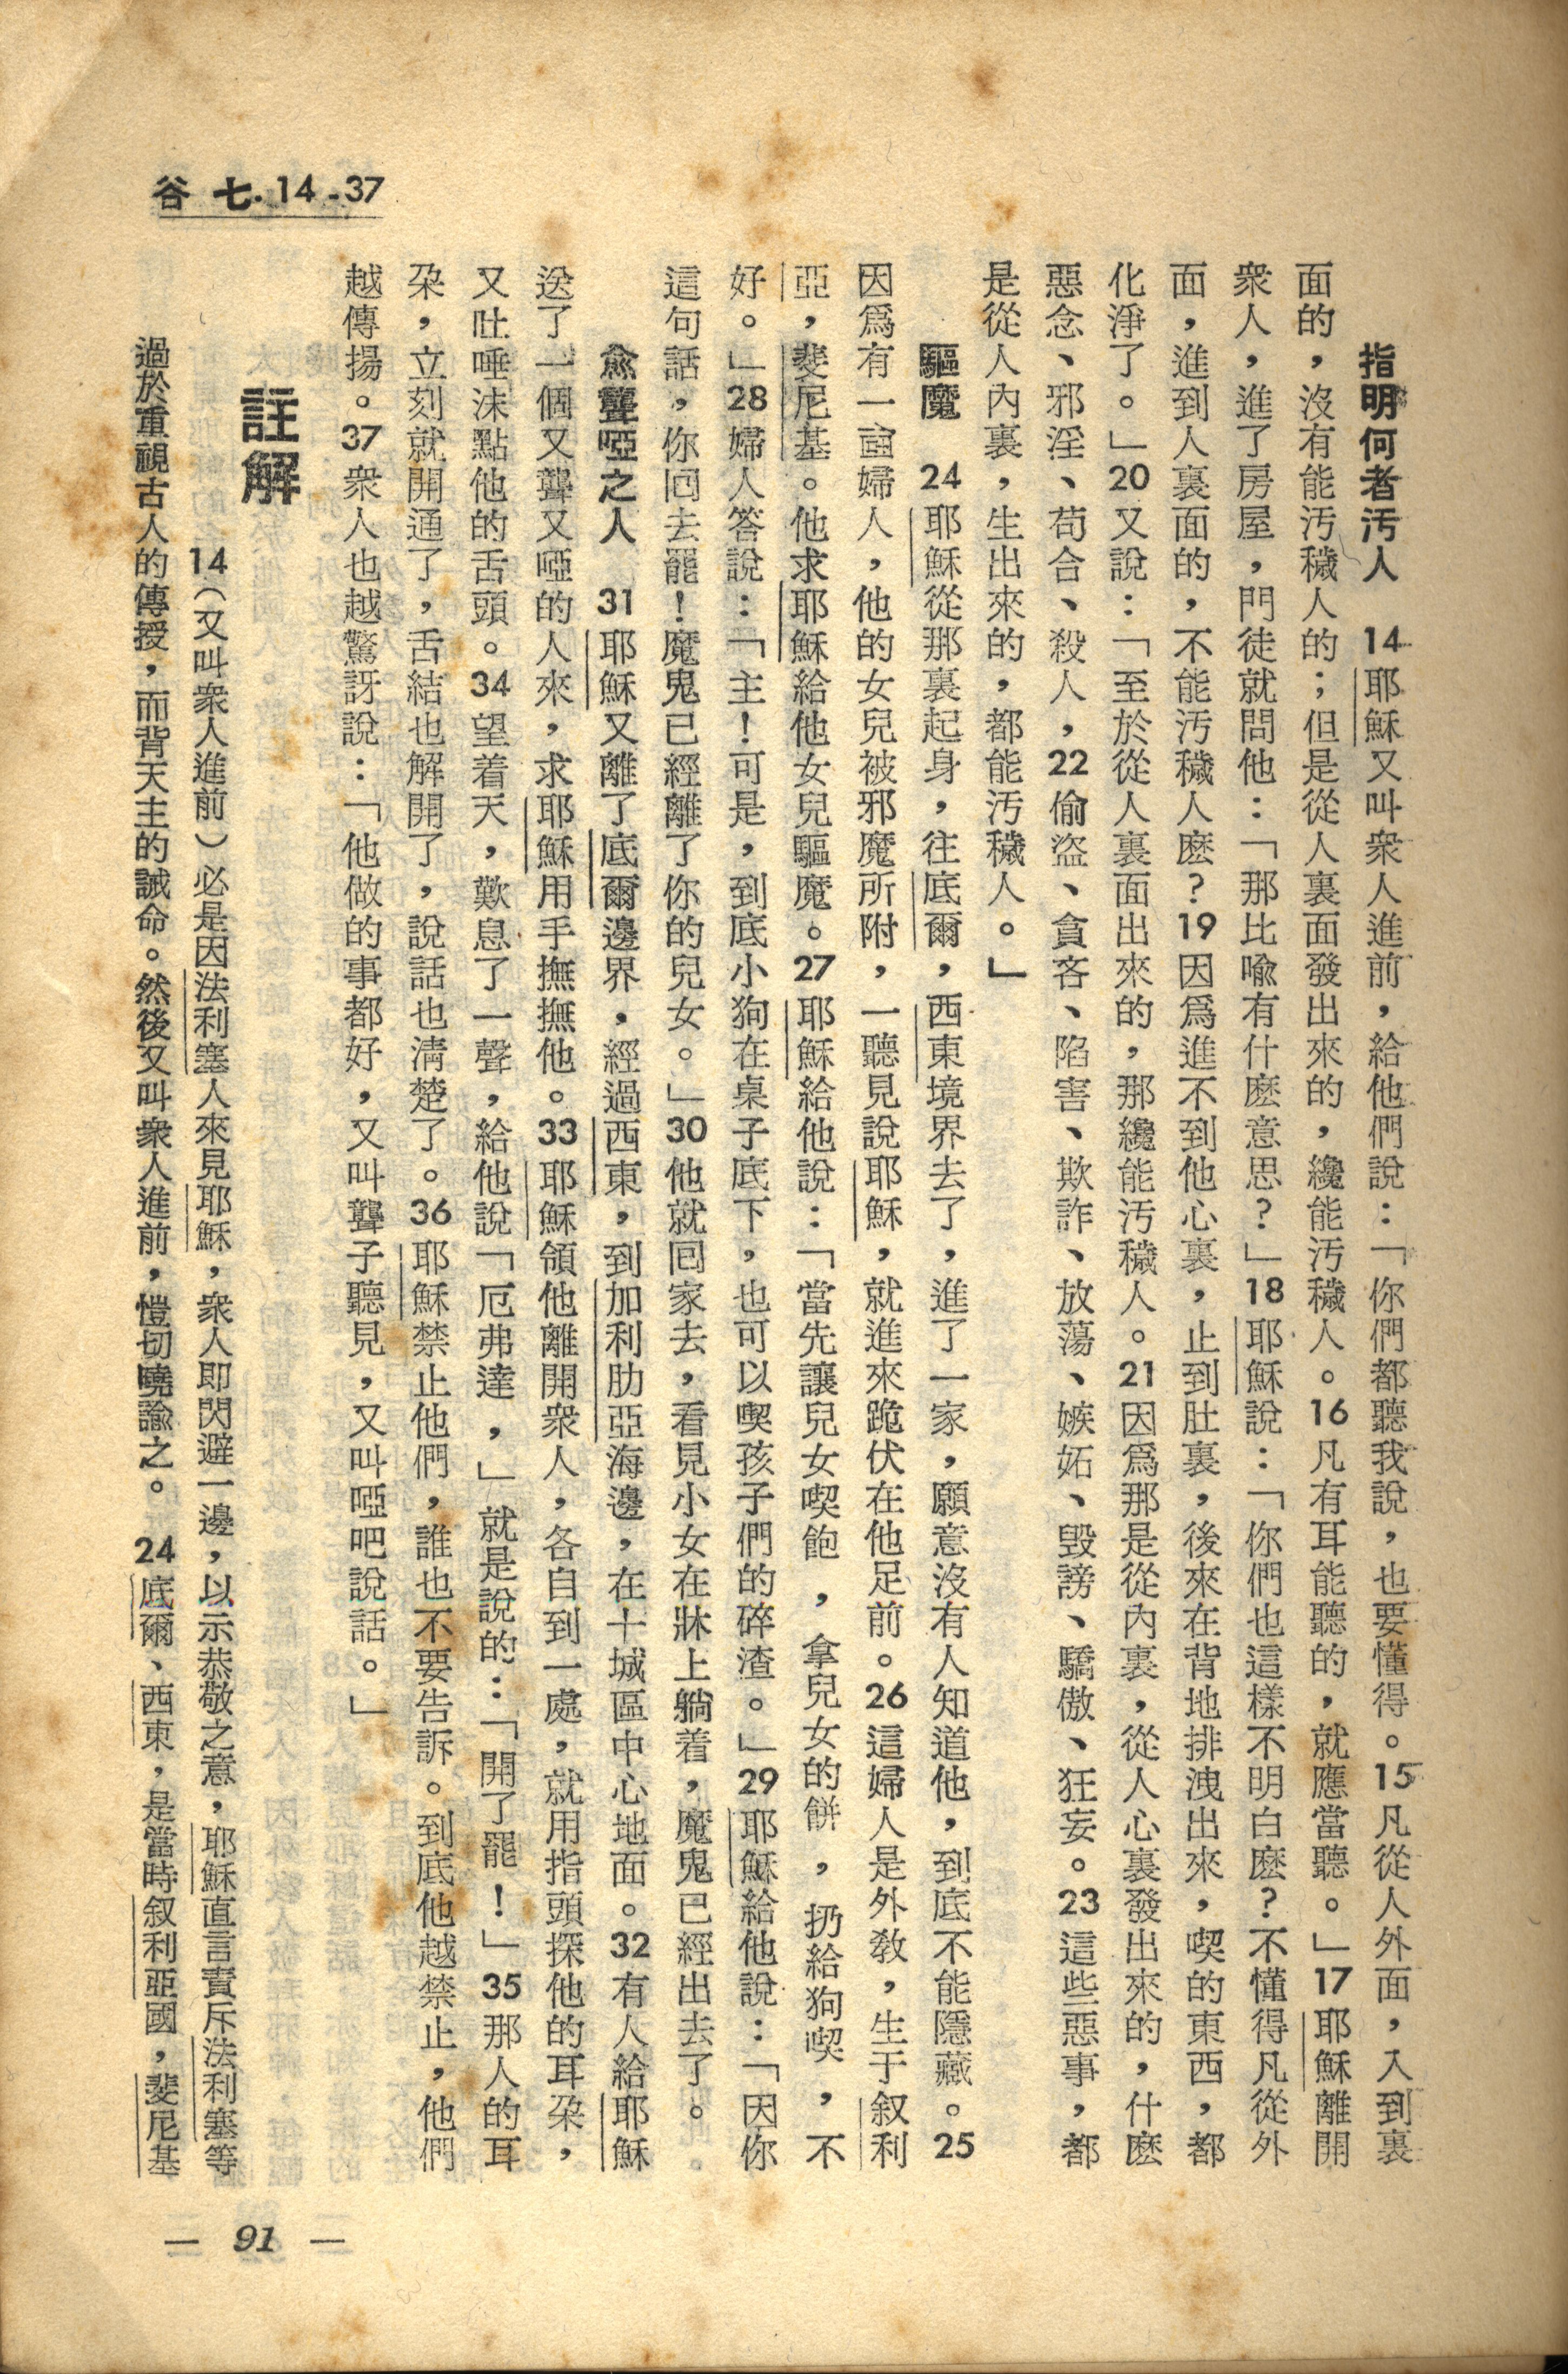 谷 七.14-37
指明何者汚人　14耶穌又叫衆人進前，給他們說：「你們都聽我說，也要懂得。15凡從人外面，入到裏
面的，沒有能汚穢人的；但是從人裏面發出來的，纔能汚穢人。16凡有耳能聽的，就應當聽。」17耶穌離開
衆人，進了房屋，門徒就問他：「那比喻有什麽意思？」18耶穌說：「你們也這樣不明白麽？不懂得凡從外
面，進到人裏面的，不能汚穢人麽？19因爲進不到他心裏，止到肚裏，後來在背地排洩出來，喫的東西，都
化淨了。」20又說：「至於從人裏面出來的，那纔能汚穢人。21因爲那是從內裏，從人心裏發出來的，什麽
惡念、邪淫、苟合、殺人，22偷盜、貪吝、陷害、欺詐、放蕩、嫉妬、毀謗、驕傲、狂妄。23這些惡事，都
是從人內裏，生出來的，都能汚穢人。」
驅魔　24耶穌從那裏起身，往底爾，西東境界去了，進了一家，願意沒有人知道他，到底不能隱藏。25
因爲有一個婦人，他的女兒被邪魔所附，一聽見說耶穌，就進來跪伏在他足前。26這婦人是外敎，生于叙利
亞，斐尼基。他求耶穌給他女兒驅魔。27耶穌給他說：「當先讓兒女喫飽，拿兒女的餅，扔給狗喫，不
好。」28婦人答說：「主！可是，到底小狗在桌子底下，也可以喫孩子們的碎渣。」29耶穌給他說：「因你
這句話，你回去罷！魔鬼已經離了你的兒女。」30他就回家去，看見小女在牀上躺着，魔鬼已經出去了。
愈聾啞之人　31耶穌又離了底爾邊界，經過西東，到加利肋亞海邊，在十城區中心地面。32有人給耶穌
送了一個又聾又啞的人來，求耶穌用手撫撫他。33耶穌領他離開衆人，各自到一處，就用指頭探他的耳朶，
又吐唾沫點他的舌頭。34望着天，歎息了一聲，給他說「厄弗達，」就是說的：「開了罷！」35那人的耳
朶，立刻就開通了，舌結也解開了，說話也淸楚了。36耶穌禁止他們，誰也不要告訴。到底他越禁止，他們
越傳揚。37衆人也越驚訝說：「他做的事都好，又叫聾子聽見，又叫啞吧說話。」
註解
14（又叫衆人進前）必是因法利塞人來見耶穌，衆人卽閃避一邊，以示恭敬之意，耶穌直言責斥法利塞等
過於重視古人的傳授，而背天主的誡命。然後又叫衆人進前，愷切曉諭之。　24底爾、西東，是當時叙利亞國，斐尼基
— 91 —